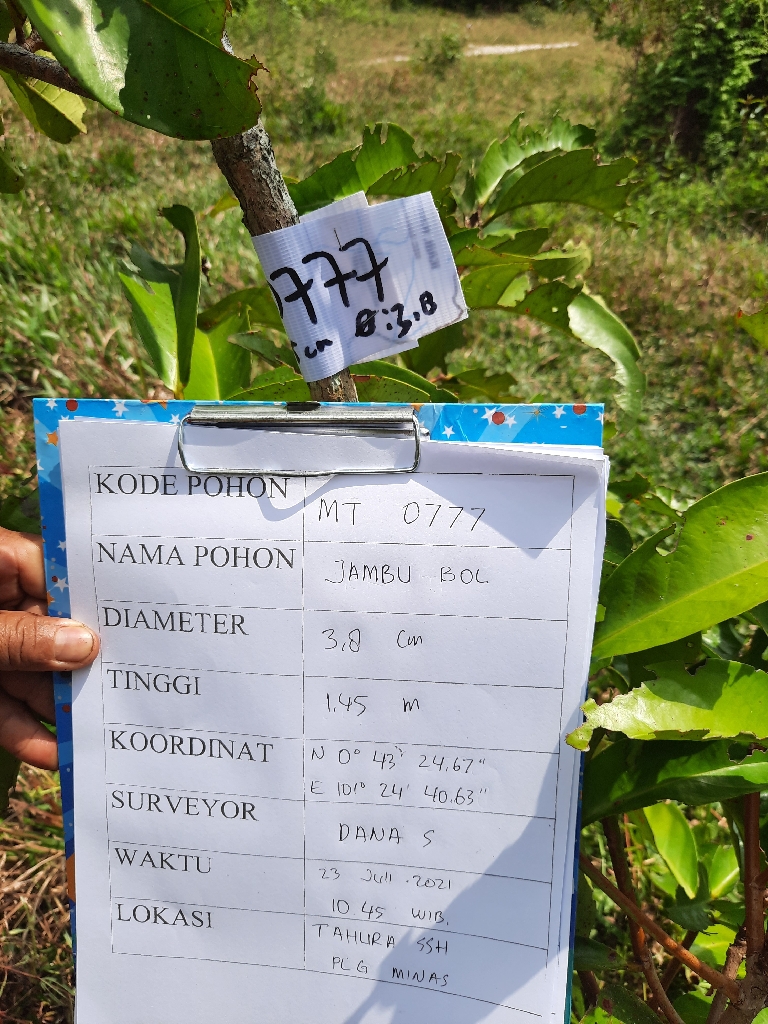 0777
cm ø:3,8
KODE POHON MT 0777
NAMA POHON JAMBU BOL
DIAMETER 3,8 cm
TINGGI 1.45 m
KOORDINAT N 0° 43' 24.67"
E 101° 24' 40.63"
SURVEYOR DANA S
WAKTU 23 Juli .2021
10.45 WIB.
LOKASI TAHURA SSH
PLG MINAS